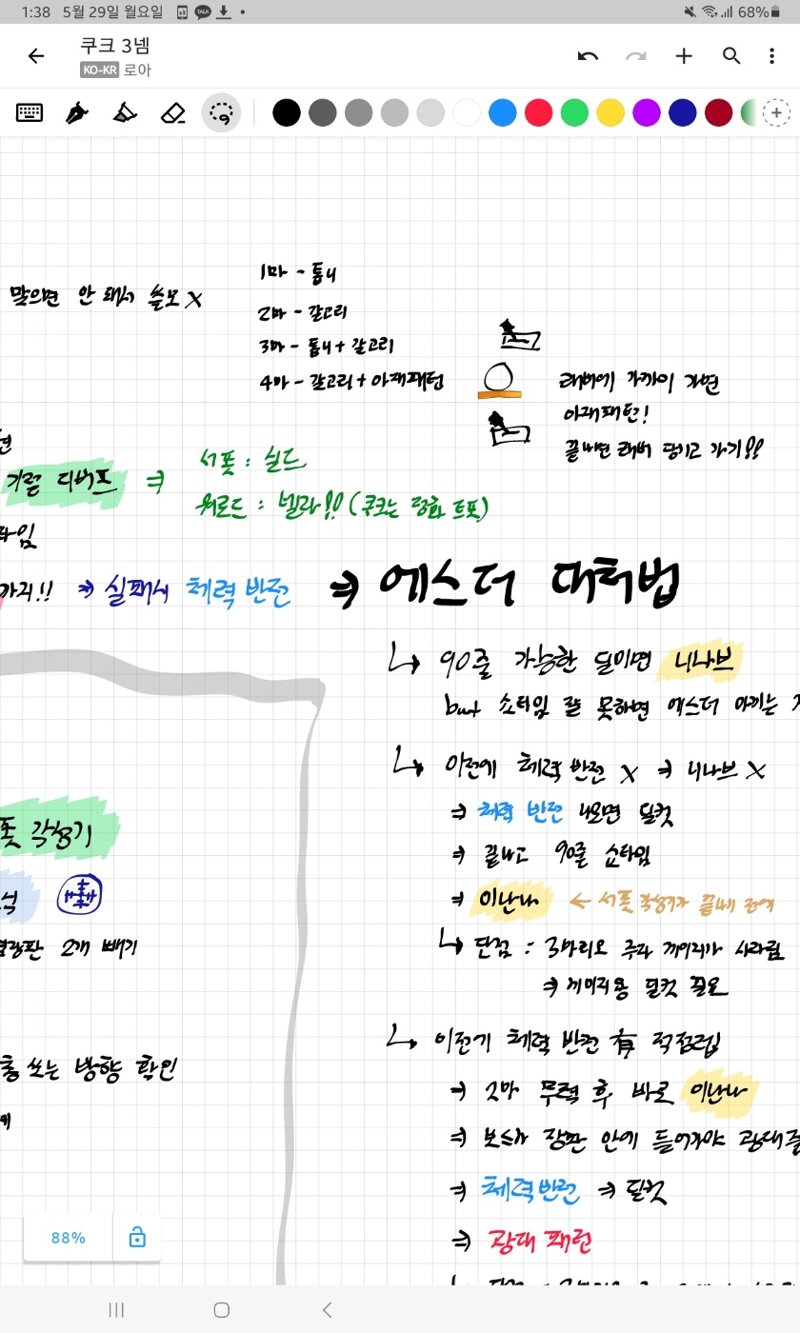 1:38 5월 29일 월요일
68%
쿠크 3넴
KO-KR 로아
맞으면 안 돼서 쓸모 X
1마 - 톱니
2마 - 갈고리
3마 - 톱니 + 갈고리
4마 - 갈고리 + 아재패턴
레버에 가까이 가면
아재패턴!
끝나면 레버 당기고 가기!!
디버프 ⇒
서폿 : 실드
워로드 : 넬라!! (쿠크는 토포)
타임
⇒ 실패시 체력 반전 ⇒ 에스더 대처법
↳ 90줄 가능한 딜이면 니나브
but 쇼타임 잘 못하면 에스더 아끼는
↳ 이전에 체력 반전 X ⇒ 니나브 X
⇒ 체력 반전 나오면 딜컷
⇒ 끝나고 90줄 쇼타임
⇒ 이난나 ← 서폿 각성기가 끝내기 전에
↳ 단점 : 3마리오 주과 게이지가 사라짐
⇒ 게이지용 딜컷 필요
↳ 이전기 체력 반전 有 적점렙
⇒ 2마 무력 후 바로 이난나
⇒ 보스가 장판 안에 들어가야 광대
⇒ 체력 반전 ⇒ 딜컷
⇒ 광대 패턴
폿 각성기
석
2개 빼기
쓰는 방향 확인
88%